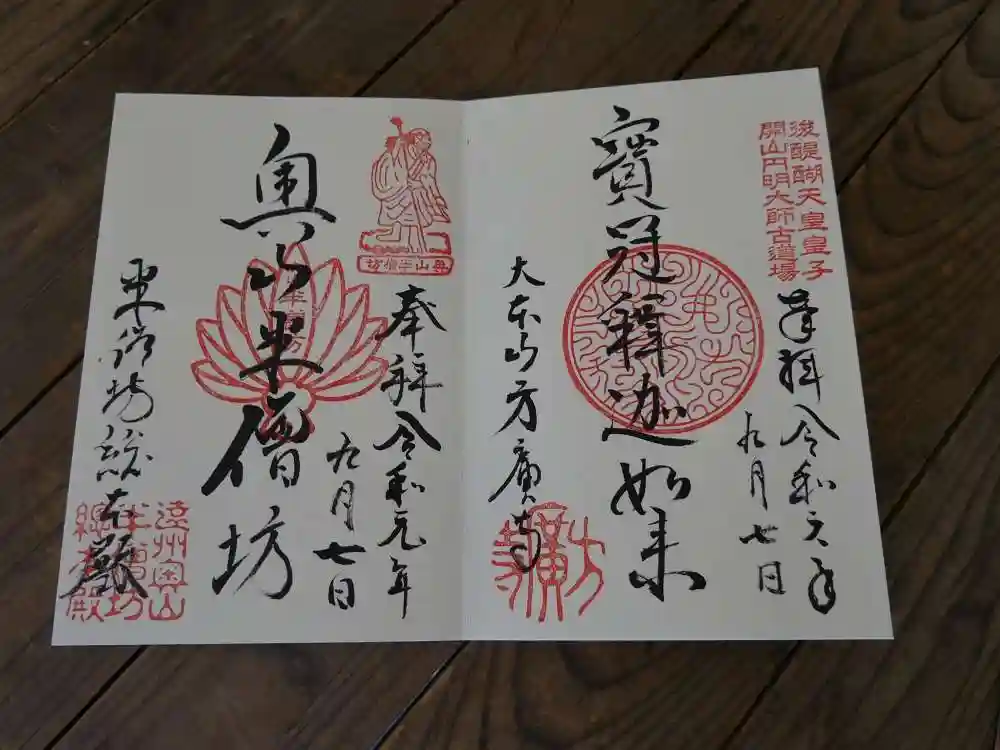 後醍醐天皇皇子
開山円明大師古道場
奉拝令和元年
九月七日
寳冠釋迦如来
大本山方廣寺
方廣寺
奥山半僧坊
奉拝令和元年
九月七日
奥山半僧坊
半僧坊総本殿
遠州奥山
半僧坊
總本殿